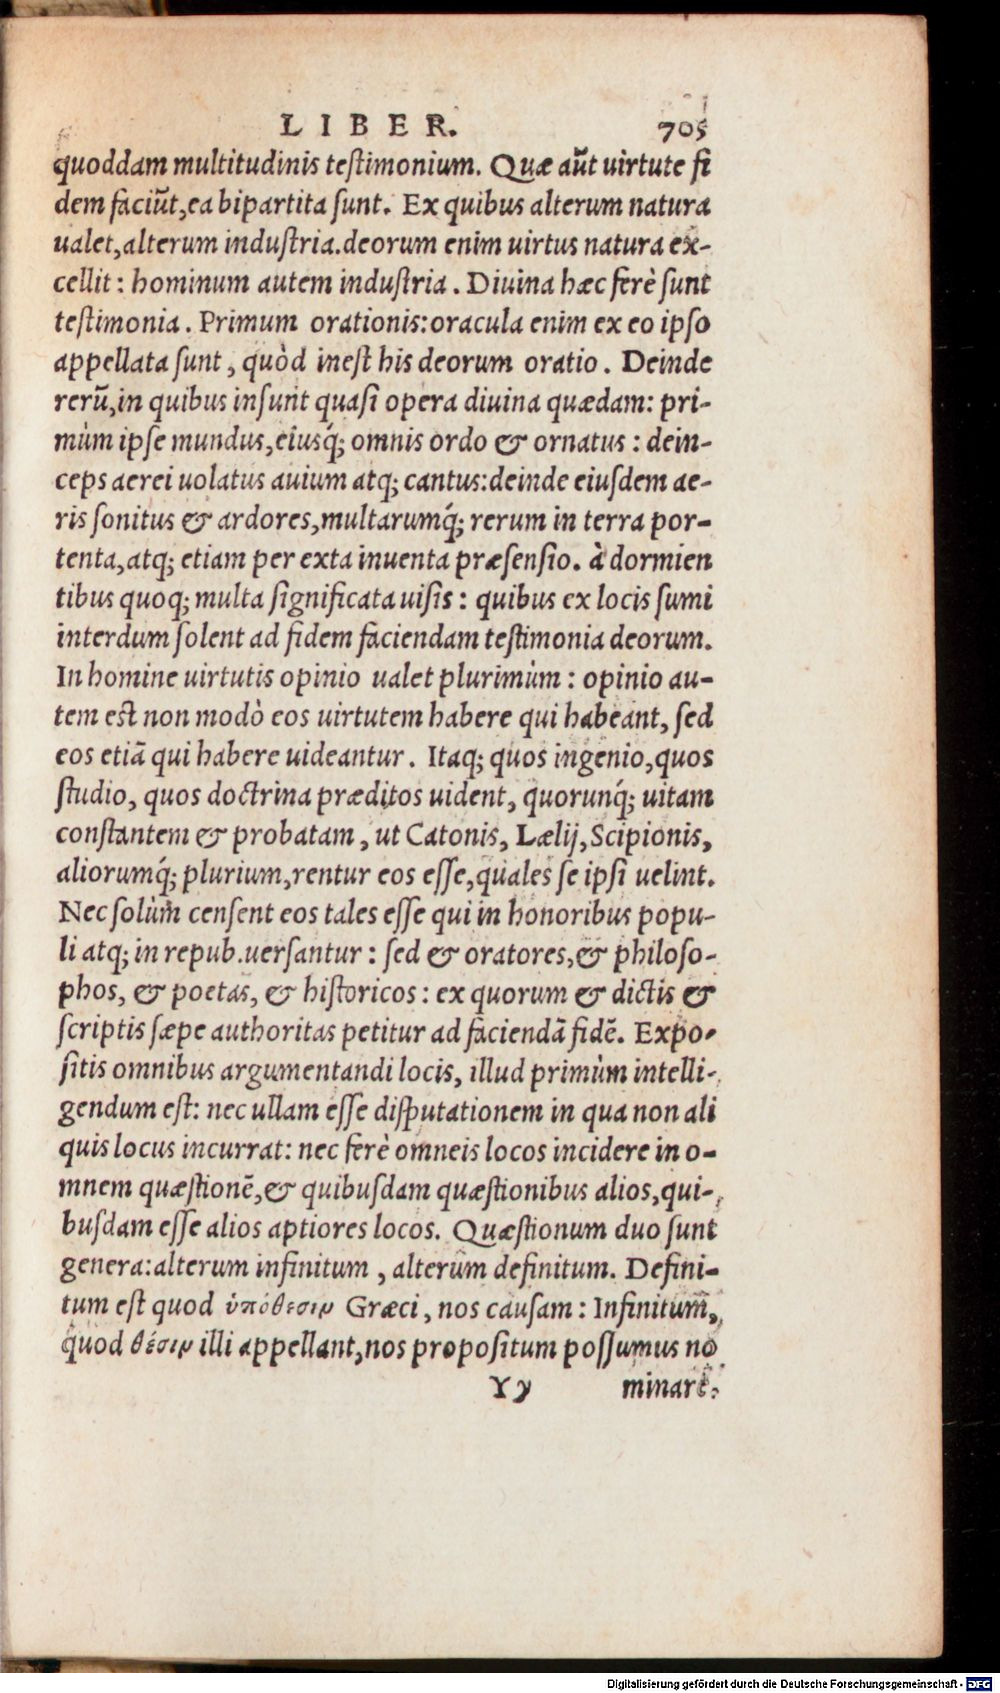 LIBER. 705
quoddam multitudinis testimonium. Quæ aũt uirtute fi
dem faciũt,ea bipartita sunt. Ex quibus alterum natura
ualet,alterum industria.deorum enim uirtus natura ex-
cellit: hominum autem industria. Diuina hæc ferè sunt
testimonia. Primum orationis:oracula enim ex eo ipso
appellata sunt, quòd inest his deorum oratio. Deinde
rerũ,in quibus insunt quasi opera diuina quædam: pri-
mùm ipse mundus,eiusq́; omnis ordo & ornatus: dein-
ceps aerei uolatus auium atq; cantus:deinde eiusdem ae-
ris sonitus & ardores,multarumq́; rerum in terra por-
tenta,atq; etiam per exta inuenta præsensio. à dormien
tibus quoq; multa significata uisis: quibus ex locis sumi
interdum solent ad fidem faciendam testimonia deorum.
In homine uirtutis opinio ualet plurimùm: opinio au-
tem est non modò eos uirtutem habere qui habeant, sed
eos etiã qui habere uideantur. Itaq; quos ingenio,quos
studio, quos doctrina præditos uident, quorunq́; uitam
constantem & probatam, ut Catonis, Lælij, Scipionis,
aliorumq́; plurium,rentur eos esse,quales se ipsi uelint.
Nec solùm censent eos tales esse qui in honoribus popu-
li atq; in repub.uersantur: sed & oratores,& philoso-
phos, & poetas, & historicos: ex quorum & dictis &
scriptis sæpe authoritas petitur ad faciendã fidẽ. Expo-
sitis omnibus argumentandi locis, illud primùm intelli-
gendum est: nec ullam esse disputationem in qua non ali
quis locus incurrat: nec ferè omneis locos incidere in o-
mnem quæstionẽ,& quibusdam quæstionibus alios,qui-
busdam esse alios aptiores locos. Quæstionum duo sunt
genera:alterum infinitum, alterum definitum. Defini-
tum est quod ὑπόθεσιν Græci, nos causam: Infinitum,
quod θέσιν illi appellant,nos propositum possumus no
Yy minare.
Digitalisierung gefördert durch die Deutsche Forschungsgemeinschaft - DFG